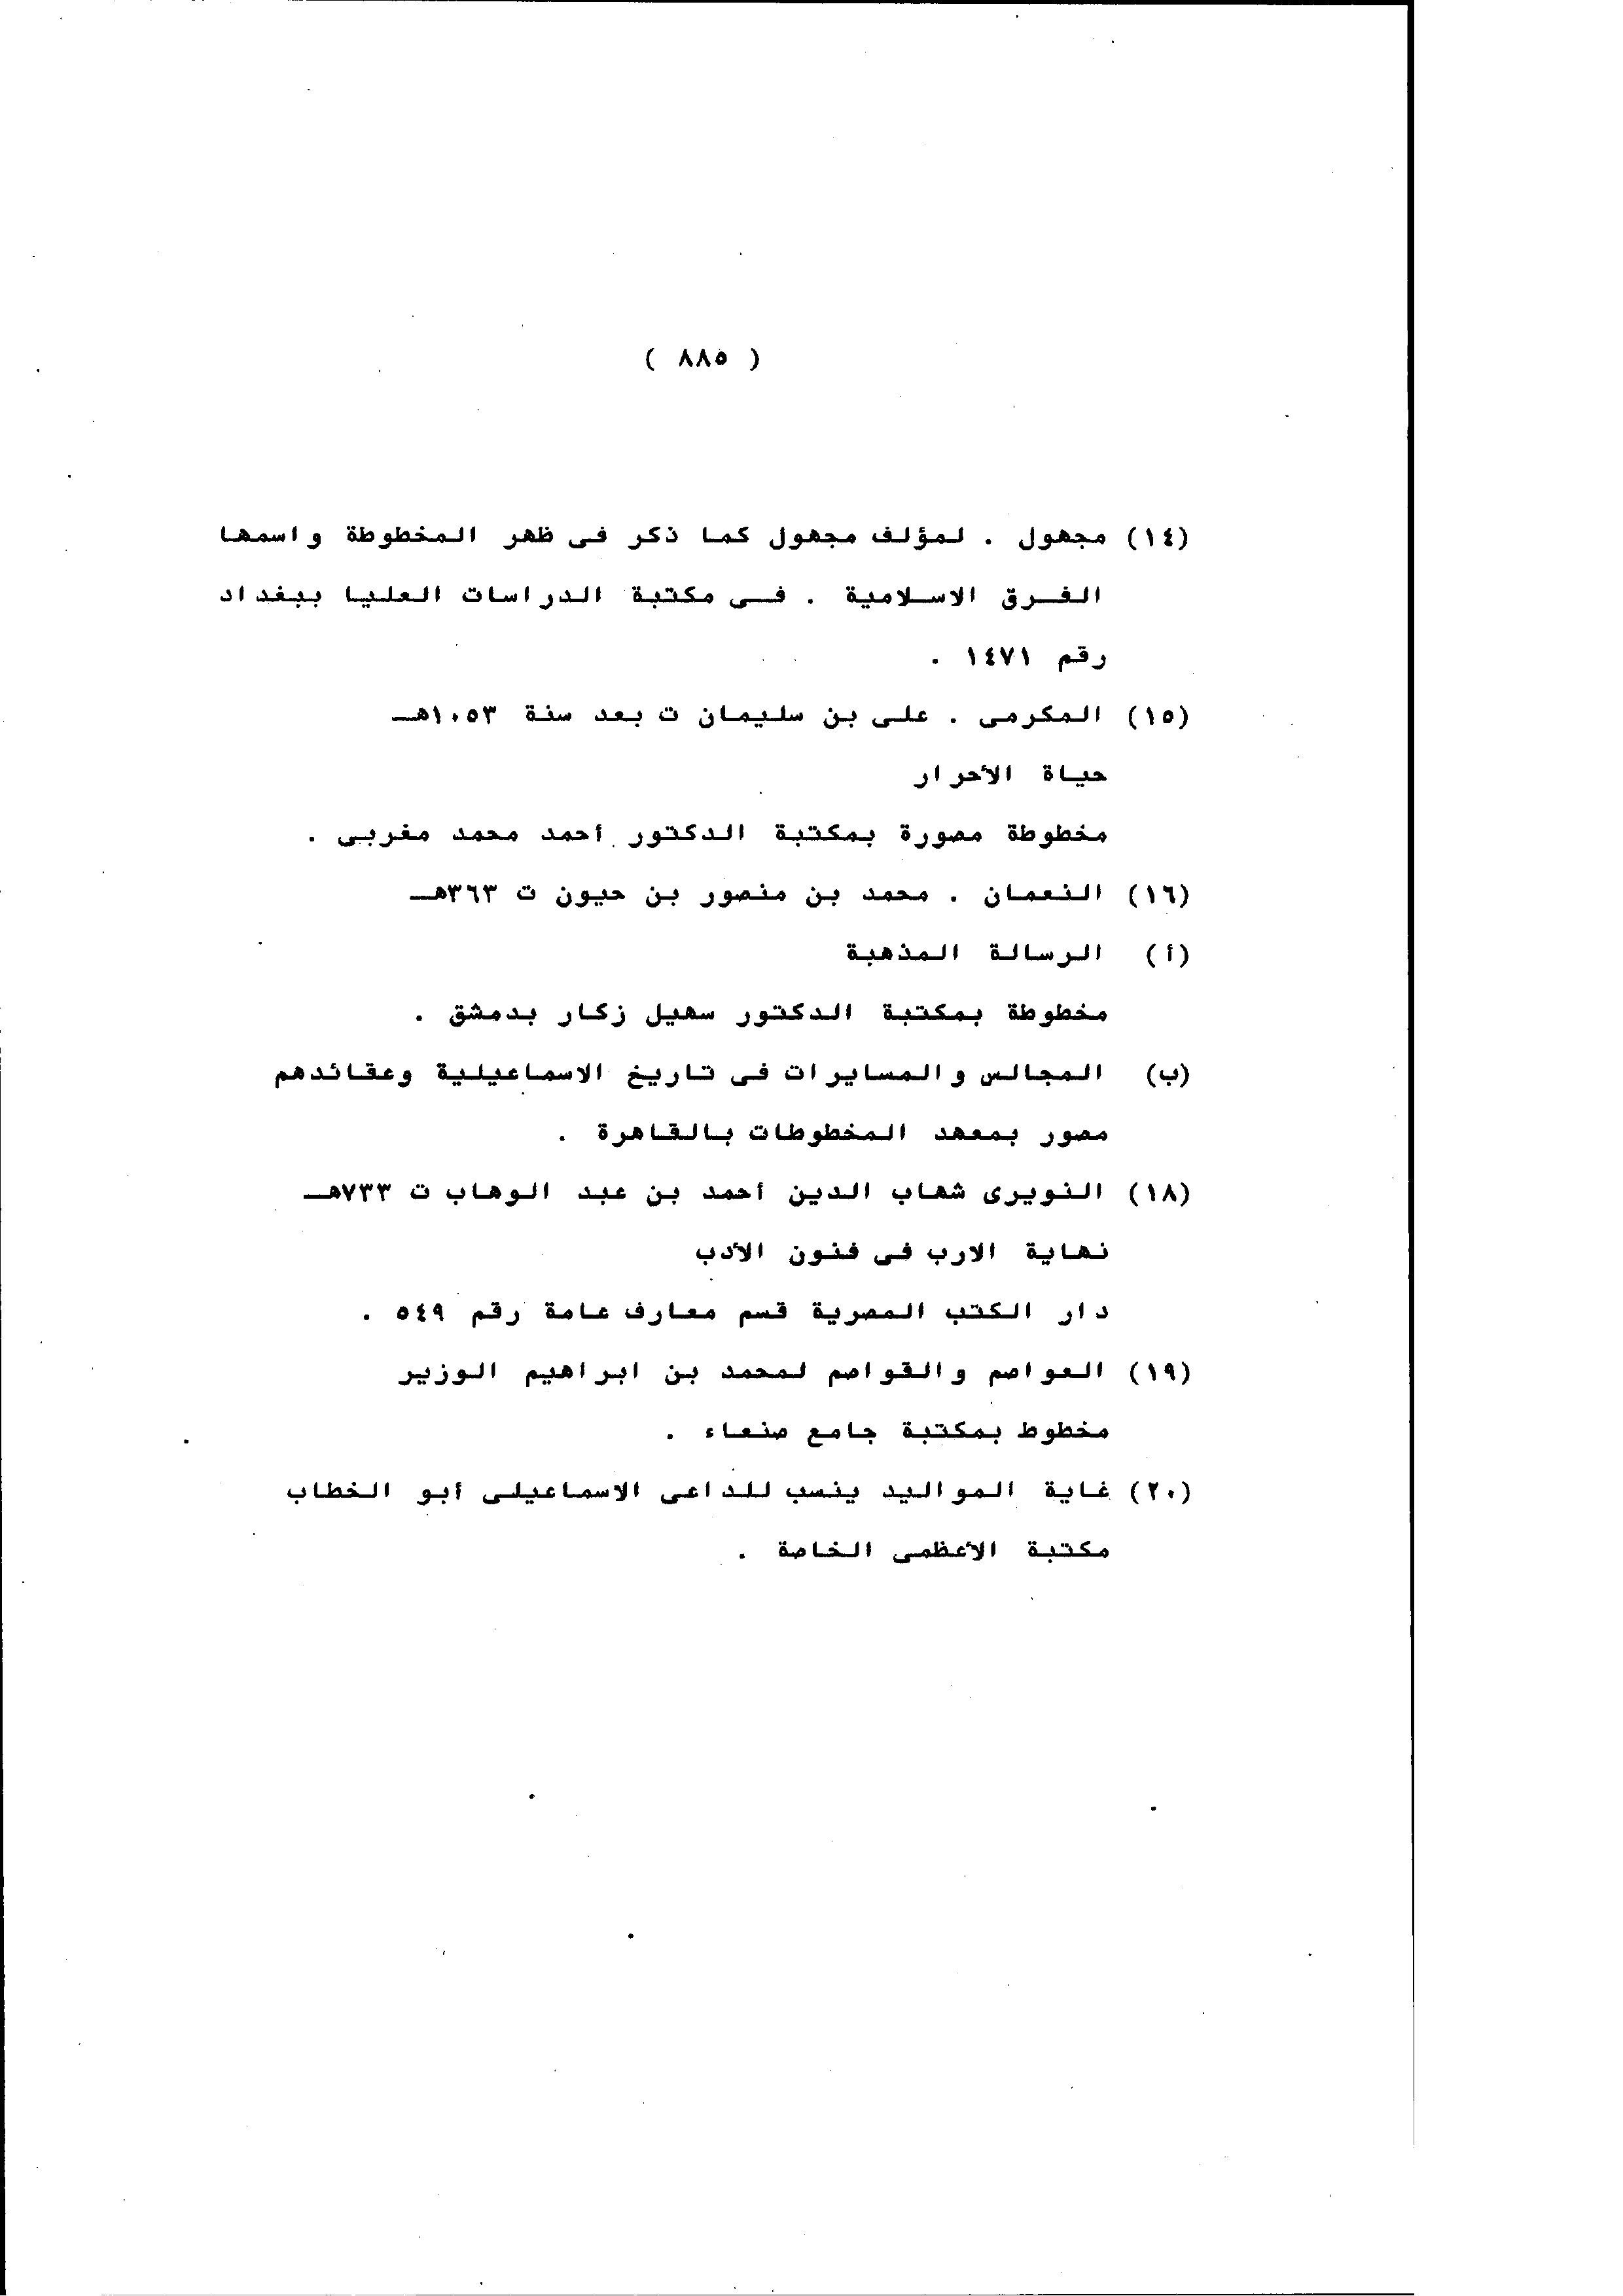 ( ٨٨٥ )
(١٤) مجهول . لمؤلف مجهول كما ذكر فى ظهر المخطوطة واسمها
الفرق الاسلامية . فى مكتبة الدراسات العليا ببغداد
رقم ١٤٧١ .
(١٥) المكرمى . على بن سليمان ت بعد سنة ١٠٥٣هـ
حياة الأحرار
مخطوطة مصورة بمكتبة الدكتور أحمد محمد مغربى .
(١٦) النعمان . محمد بن منصور بن حيون ت ٣٦٣هـ
(أ) الرسالة المذهبة
مخطوطة بمكتبة الدكتور سهيل زكار بدمشق .
(ب) المجالس والمسايرات فى تاريخ الاسماعيلية وعقائدهم
مصور بمعهد المخطوطات بالقاهرة .
(١٨) النويرى شهاب الدين أحمد بن عبد الوهاب ت ٧٣٣هـ
نهاية الارب فى فنون الأدب
دار الكتب المصرية قسم معارف عامة رقم ٥٤٩ .
(١٩) العواصم والقواصم لمحمد بن ابراهيم الوزير
مخطوط بمكتبة جامع صنعاء .
(٢٠) غاية المواليد ينسب للداعى الاسماعيلى أبو الخطاب
مكتبة الأعظمى الخاصة .